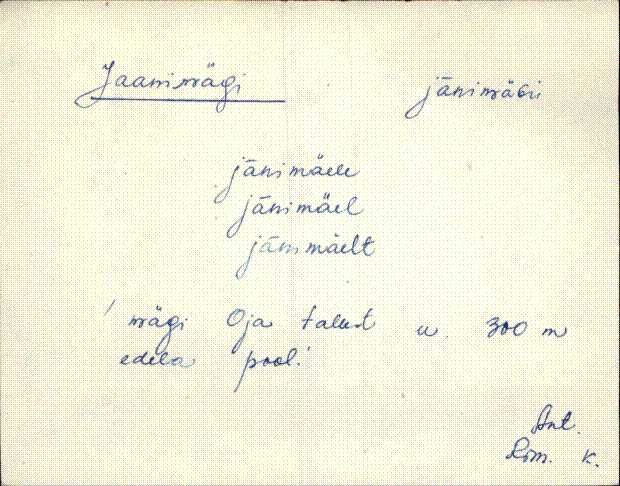 Jaanimägi jānimäɢi
jānimäele
jānimäel
jānimäelt
/ mägi Oja talust u. 300 m
edela pool.
Ant.
Rim. k.